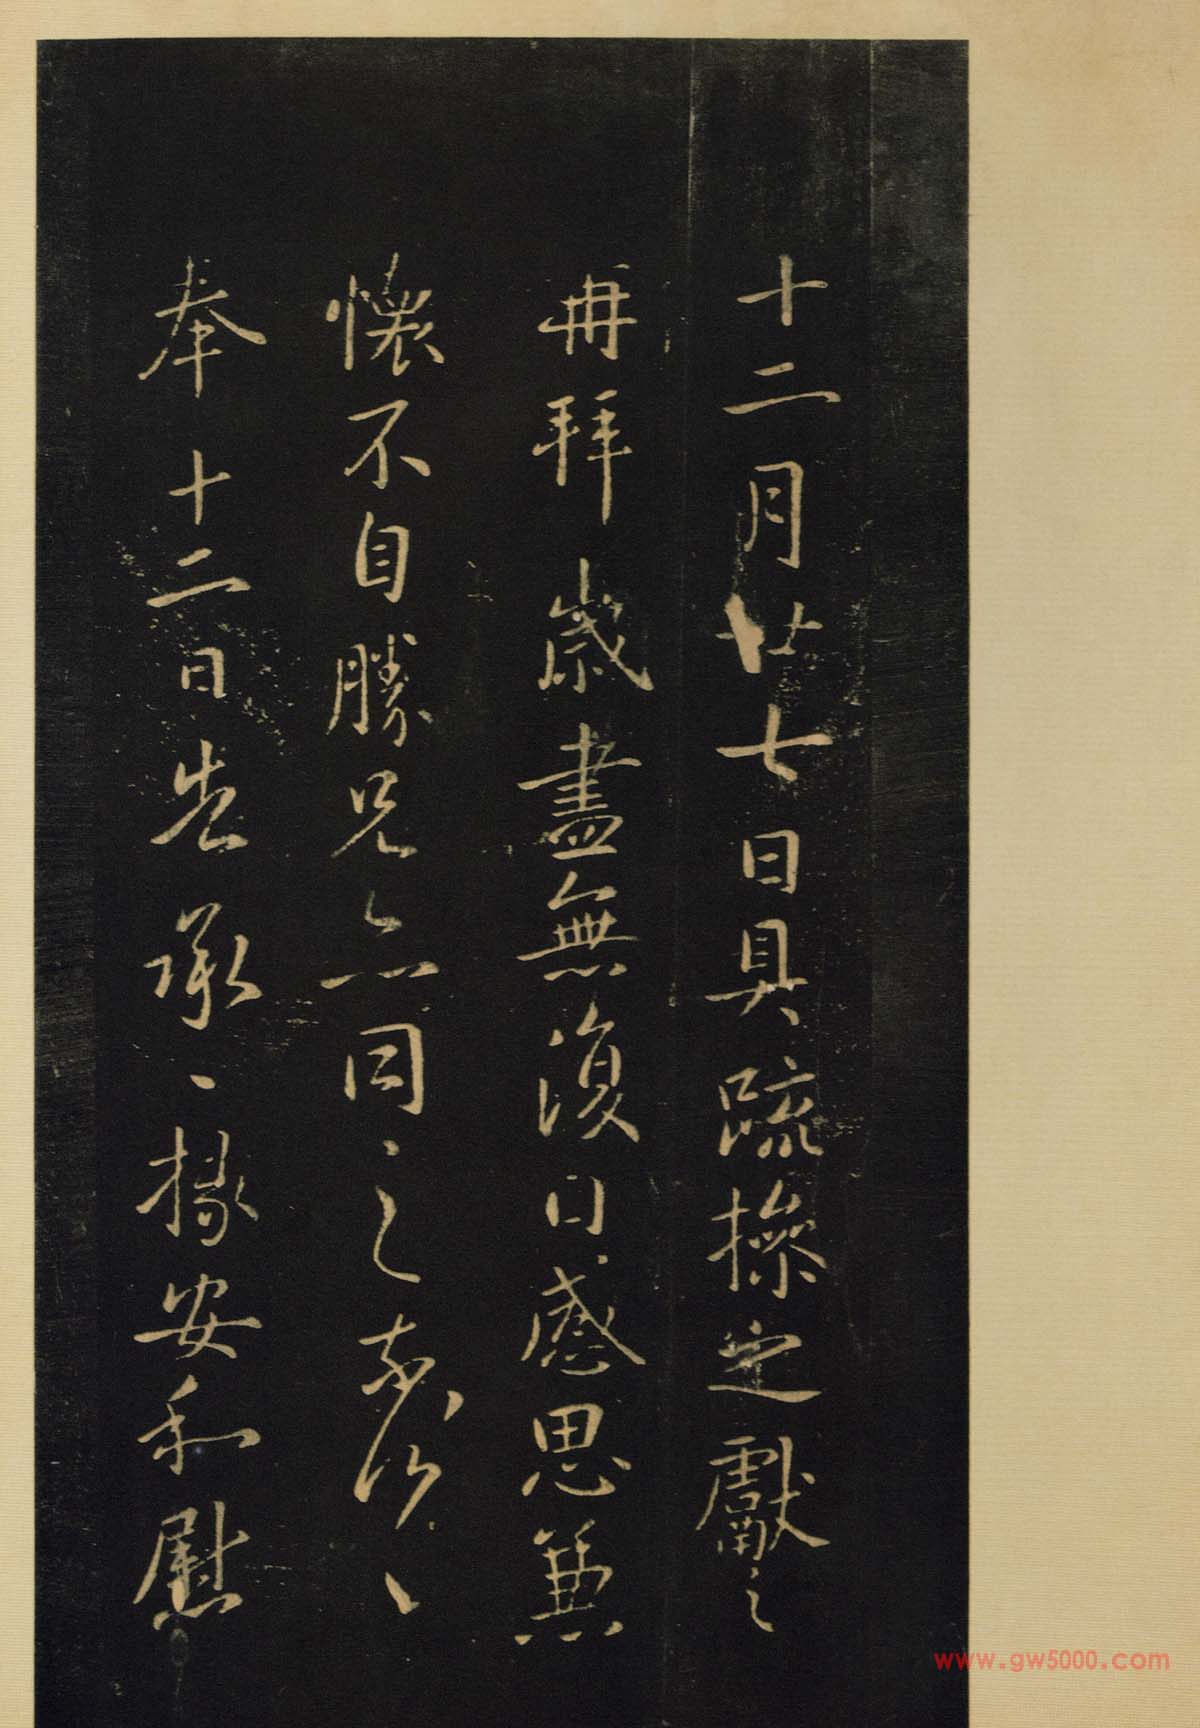 十二月廿七日具疏操之獻之
再拜歲盡無復日感思兼
懷不自勝兄亦同之
奉十二日告承操安和慰
www.gw5000.com